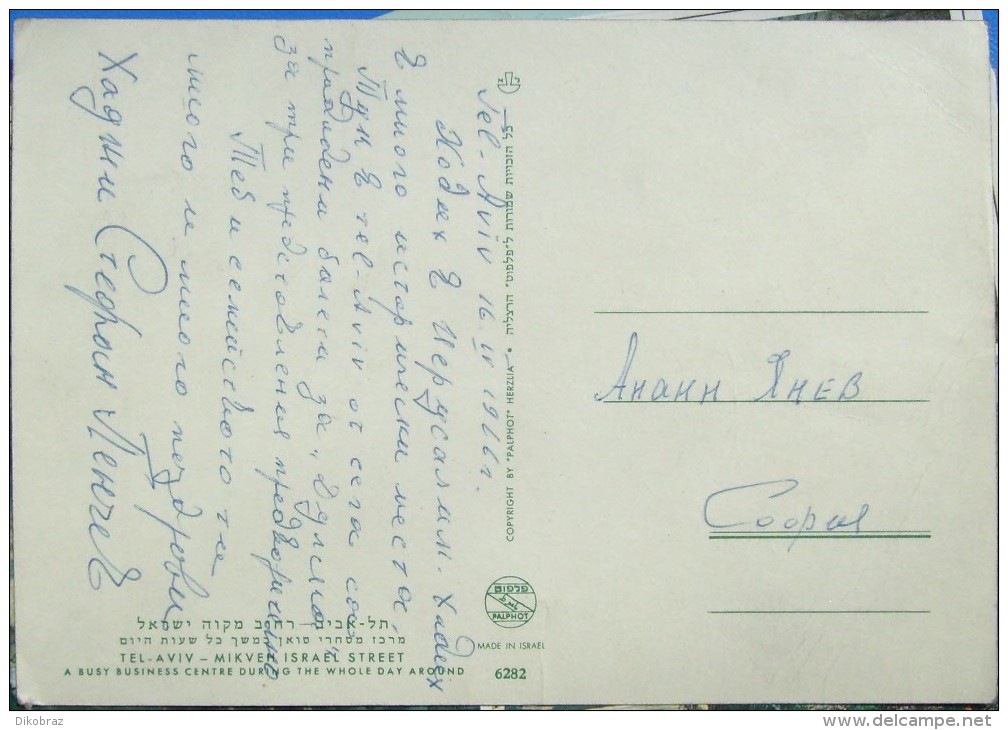 Tel-Aviv 16.IV 1966г.
Ходих в Иерусалим. Ходих
в много исторически места.
Тук в tel-Aviv от сега са
продадени билети за "
за три представления предварително
Теб и семейството ти
много и много поздрави
Хаджи Стефан Менчев
כל הזכויות שמורות ל"פלפוט" הרצליה • COPYRIGHT BY "PALPHOT" HERZLIA
פלפוט
PALPHOT
MADE IN ISRAEL
תל-אביב – רחוב מקוה ישראל
מרכז מסחרי סואן במשך כל שעות היום
TEL-AVIV – MIKVEH ISRAEL STREET
A BUSY BUSINESS CENTRE DURING THE WHOLE DAY AROUND
6282
Анани Янев
София
Dikobraz
www.delcampe.net